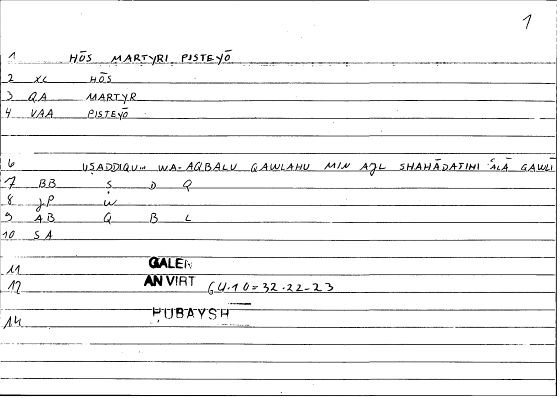 1
1 HŌS MARTYRI PISTEYŌ
2 XC HŌS
3 QA MARTYR
4 VAA PISTEYŌ
6 UṢADDIQU WA-AQBALU QAWLAHU MIN AJL SHAHĀDATIHI ALĀ QAWLI
7 BB Ṣ D Q
8 JP W
9 AB Q B L
10 SA
11 GALEN
12 AN VIRT 64.10=32.22-23
14 HUBAYSH